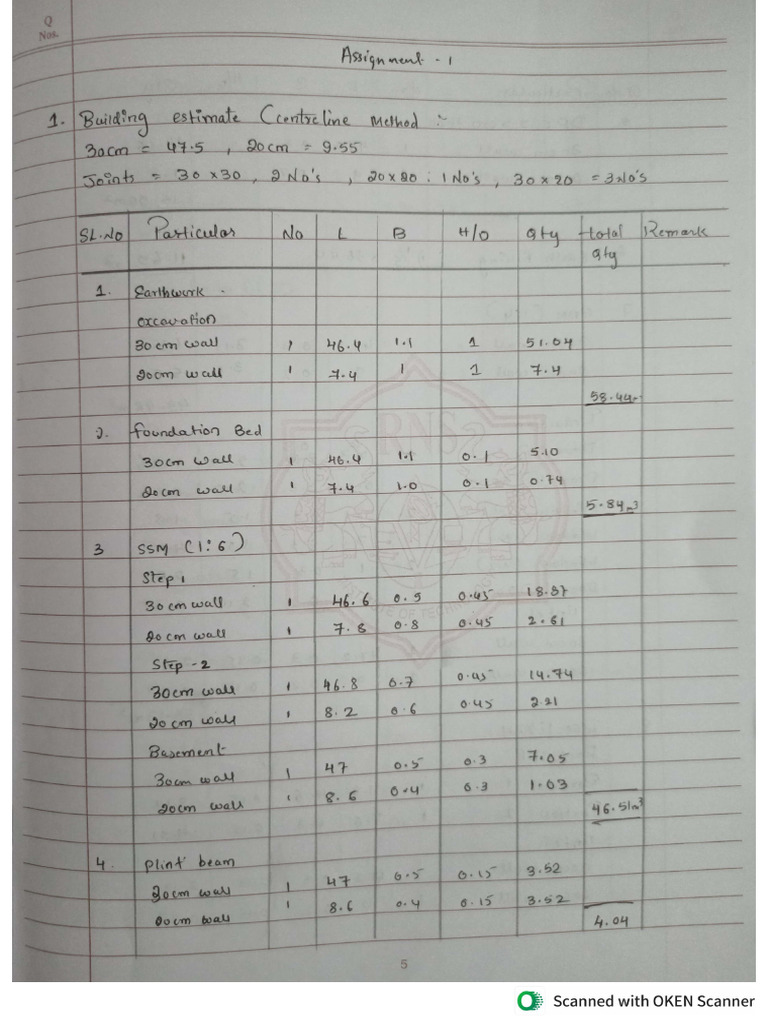 Q
Nos.
Assignment - 1
1. Building estimate (centreline Method :-
30cm = 47.5 , 20cm = 9.55
Joints = 30 x 30 , 2 No's , 20 x 20 : 1 No's , 30 x 20 = 3 No's
SL.NO Particular No L B H/D Qty total Qty Remark
1. Earthwork -
excavation
30 cm wall 1 46.4 1.1 1 51.04
20cm wall 1 7.4 1 1 7.4
58.44
2. foundation Bed
30cm wall 1 46.4 1.1 0.1 5.10
20 cm wall 1 7.4 1.0 0.1 0.74
5.84 m³
3 SSM (1:6)
Step 1
30 cm wall 1 46.6 0.9 0.45 18.87
20cm wall 1 7.8 0.8 0.45 2.61
Step -2
30cm wall 1 46.8 0.7 0.45 14.74
20 cm wall 1 8.2 0.6 0.45 2.21
Basement
30cm wall 1 47 0.5 0.3 7.05
20cm wall 1 8.6 0.4 0.3 1.03
46.51m³
4. plint beam
20cm wall 1 47 0.5 0.15 3.52
20cm wall 1 8.6 0.4 0.15 3.52
4.04
5
Scanned with OKEN Scanner